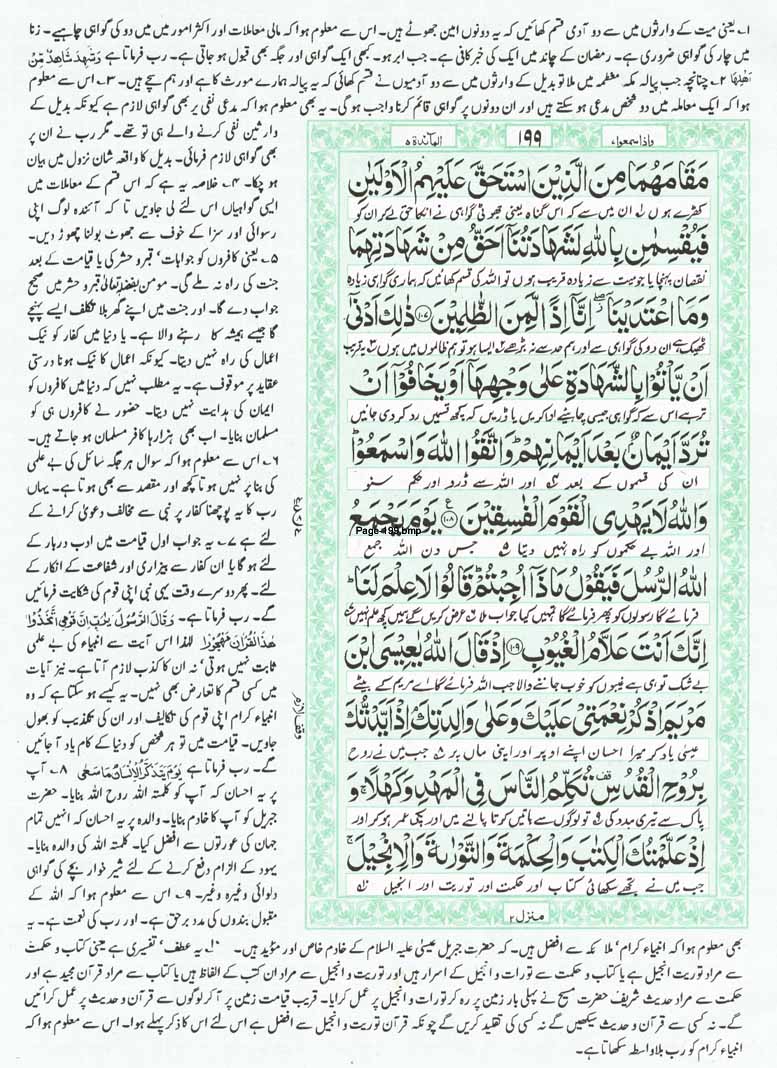 ۱۔ یعنی میت کے وارثوں میں سے دو آدمی قسم کھائیں کہ یہ دونوں امین جھوٹے ہیں۔ اس سے معلوم ہوا کہ مالی معاملات اور اکثر امور میں دو کی گواہی چاہیے۔ زنا
میں چار کی گواہی ضروری ہے۔ رمضان کے چاند میں ایک کی خبر کافی ہے۔ جب ابر ہو۔ کبھی ایک گواہی اور جگہ بھی قبول ہو جاتی ہے۔ رب فرماتا ہے وَشَهِدَ شَاهِدٌ مِّنْ
اَهْلِهَا ۲۔ چنانچہ جب پیالہ مکہ معظمہ میں ملا تو بدیل کے وارثوں میں سے دو آدمیوں نے قسم کھائی کہ یہ پیالہ ہمارے مورث کا ہے اور ہم سچے ہیں۔ ۳۔ اس سے معلوم
ہوا کہ ایک معاملہ میں دو شخص مدعی ہو سکتے ہیں اور ان دونوں پر گواہی قائم کرنا واجب ہو گی۔ یہ بھی معلوم ہوا کہ مدعی نفی پر بھی گواہی لازم ہے کیونکہ بدیل کے
وارثین نفی کرنے والے ہی تو تھے۔ مگر رب نے ان پر
بھی گواہی لازم فرمائی۔ بدیل کا واقعہ شان نزول میں بیان
ہو چکا۔ ۴۔ خلاصہ یہ ہے کہ اس قسم کے معاملات میں
ایسی گواہیاں اس لئے لی جاویں تا کہ آئندہ لوگ اپنی
رسوائی اور سزا کے خوف سے جھوٹ بولنا چھوڑ دیں۔
۵۔ یعنی کافروں کو جوابات قبر و حشر کی یا قیامت کے بعد
جنت کی راہ نہ ملے گی۔ مومن بفضلہ تعالیٰ قبر و حشر میں صحیح
جواب دے گا۔ اور جنت میں اپنے گھر بلا تکلف ایسے پہنچے
گا جیسے ہمیشہ کا رہنے والا ہے۔ یا دنیا میں کفار کو نیک
اعمال کی راہ نہیں دیتا۔ کیونکہ اعمال کا نیک ہونا درستی
عقاید پر موقوف ہے۔ یہ مطلب نہیں کہ دنیا میں کافروں کو
ایمان کی ہدایت نہیں دیتا۔ حضور نے کافروں ہی کو
مسلمان بنایا۔ اب بھی ہزارہا کافر مسلمان ہو جاتے ہیں۔
۶۔ اس سے معلوم ہوا کہ سوال ہر جگہ سائل کی بے علمی
کی بنا پر نہیں ہوتا کچھ اور مقصد سے بھی ہوتا ہے۔ یہاں
رب کا یہ پوچھنا کفار پر نبی سے مخالف دعویٰ کرانے کے
لئے ہے ۷۔ یہ جواب اول قیامت میں ادب دربار کے
لئے ہو گا یا ان کفار سے بیزاری اور شفاعت کے انکار کے
لئے۔ پھر دوسرے وقت یہی نبی اپنی قوم کی شکایت فرمائیں
گے۔ رب فرماتا ہے۔ وَقَالَ الرَّسُوْلُ يٰرَبِّ اِنَّ قَوْمِى اتَّخَذُوْا
هٰذَا الْقُرْاٰنَ مَهْجُوْرًا لہٰذا اس آیت سے انبیاء کی بے علمی
ثابت نہیں ہوتی نہ ان کا کذب لازم آتا ہے۔ نیز آیات
میں کسی قسم کا تعارض بھی نہیں۔ یہ کیسے ہو سکتا ہے کہ وہ
انبیاء کرام اپنی قوم کی تکالیف اور ان کی تکذیب کو بھول
جاویں۔ قیامت میں تو ہر شخص کو دنیا کے کام یاد آ جائیں
گے۔ رب فرماتا ہے يَوْمَ يَتَذَكَّرُ الْاِنْسَانُ مَا سَعٰى ۸۔ آپ
پر یہ احسان کہ آپ کو کلمۃ اللہ روح اللہ بنایا۔ حضرت
جبریل کو آپ کا خادم بنایا۔ والدہ پر یہ احسان کہ انہیں تمام
جہان کی عورتوں سے افضل کیا۔ کلمۃ اللہ کی والدہ بنایا۔
یہود کے الزام دفع کرنے کے لئے شیر خوار بچے کی گواہی
دلوائی وغیرہ وغیرہ۔ ۹۔ اس سے معلوم ہوا کہ اللہ کے
مقبول بندوں کی مدد برحق ہے۔ اور رب کی نعمت ہے۔ یہ
واذا سمعوا ۷
۱۹۹
المائدۃ ۵
مَقَامَهُمَا مِنَ الَّذِيْنَ اسْتَحَقَّ عَلَيْهِمُ الْاَوْلَيٰنِ
کھڑے ہوں ان میں سے کہ اس گناہ یعنی جھوٹی گواہی نے انکا حق لے کر ان کو
فَيُقْسِمٰنِ بِاللّٰهِ لَشَهَادَتُنَآ اَحَقُّ مِنْ شَهَادَتِهِمَا
نقصان پہنچایا جو میت سے زیادہ قریب ہوں تو اللہ کی قسم کھائیں کہ ہماری گواہی زیادہ
وَمَا اعْتَدَيْنَآ اِنَّآ اِذًا لَّمِنَ الظّٰلِمِيْنَ ۝۱۰۷ ذٰلِكَ اَدْنٰٓى
ٹھیک ہے ان دو کی گواہی سے اور ہم حد سے نہ بڑھے ایسا ہو تو ہم ظالموں میں ہوں یہ قریب
اَنْ يَّاْتُوْا بِالشَّهَادَةِ عَلٰى وَجْهِهَآ اَوْ يَخَافُوْٓا اَنْ
تر ہے اس سے کہ گواہی جیسی چاہیے ادا کریں یا ڈریں کہ کچھ قسمیں رد کر دی جائیں
تُرَدَّ اَيْمَانٌۢ بَعْدَ اَيْمَانِهِمْ وَاتَّقُوا اللّٰهَ وَاسْمَعُوْا
ان کی قسموں کے بعد اور اللہ سے ڈرو اور حکم سنو
وَاللّٰهُ لَا يَهْدِى الْقَوْمَ الْفٰسِقِيْنَ ۝۱۰۸ يَوْمَ يَجْمَعُ
Page-199.bmp
اور اللہ بے حکموں کو راہ نہیں دیتا ۵ جس دن اللہ جمع
اللّٰهُ الرُّسُلَ فَيَقُوْلُ مَاذَآ اُجِبْتُمْ قَالُوْا لَا عِلْمَ لَنَا
فرمائے گا رسولوں کو پھر فرمائے گا تمہیں کیا جواب ملا عرض کریں گے ہمیں کچھ علم نہیں
اِنَّكَ اَنْتَ عَلَّامُ الْغُيُوْبِ ۝۱۰۹ اِذْ قَالَ اللّٰهُ يٰعِيْسَى ابْنَ
بے شک تو ہی ہے غیبوں کو خوب جاننے والا جب اللہ فرمائے گا اے مریم کے بیٹے
مَرْيَمَ اذْكُرْ نِعْمَتِىْ عَلَيْكَ وَعَلٰى وَالِدَتِكَ اِذْ اَيَّدْتُّكَ
عیسیٰ یاد کر میرا احسان اپنے اوپر اور اپنی ماں پر جب میں نے روح
بِرُوْحِ الْقُدُسِ تُكَلِّمُ النَّاسَ فِى الْمَهْدِ وَكَهْلًا وَ
پاک سے تیری مدد کی تو لوگوں سے باتیں کرتا پالنے میں اور پکی عمر ہو کر اور
اِذْ عَلَّمْتُكَ الْكِتٰبَ وَالْحِكْمَةَ وَالتَّوْرٰىةَ وَالْاِنْجِيْلَ
جب میں نے تجھے سکھائی کتاب اور حکمت اور توریت اور انجیل
منزل ۲
وقف لازم
بھی معلوم ہوا کہ انبیاء کرام ملائکہ سے افضل ہیں۔ کہ حضرت جبریل عیسیٰ علیہ السلام کے خادم خاص اور مؤید ہیں۔ ۱۰۔ یہ عطف تفسیری ہے یعنی کتاب و حکمت
سے مراد توریت انجیل ہے یا کتاب و حکمت سے تورات و انجیل کے اسرار ہیں اور توریت و انجیل سے مراد ان کتب کے الفاظ ہیں یا کتاب سے مراد قرآن مجید ہے اور
حکمت سے مراد حدیث شریف حضرت مسیح نے پہلی بار زمین پر رہ کر تورات و انجیل پر عمل کرایا۔ قریب قیامت زمین پر آ کر لوگوں سے قرآن و حدیث پر عمل کرائیں
گے۔ نہ کسی سے قرآن و حدیث سیکھیں گے نہ کسی کی تقلید کریں گے چونکہ قرآن توریت و انجیل سے افضل ہے اس لئے اس کا ذکر پہلے ہوا۔ اس سے معلوم ہوا کہ
انبیاء کرام کو رب بلاواسطہ سکھاتا ہے۔